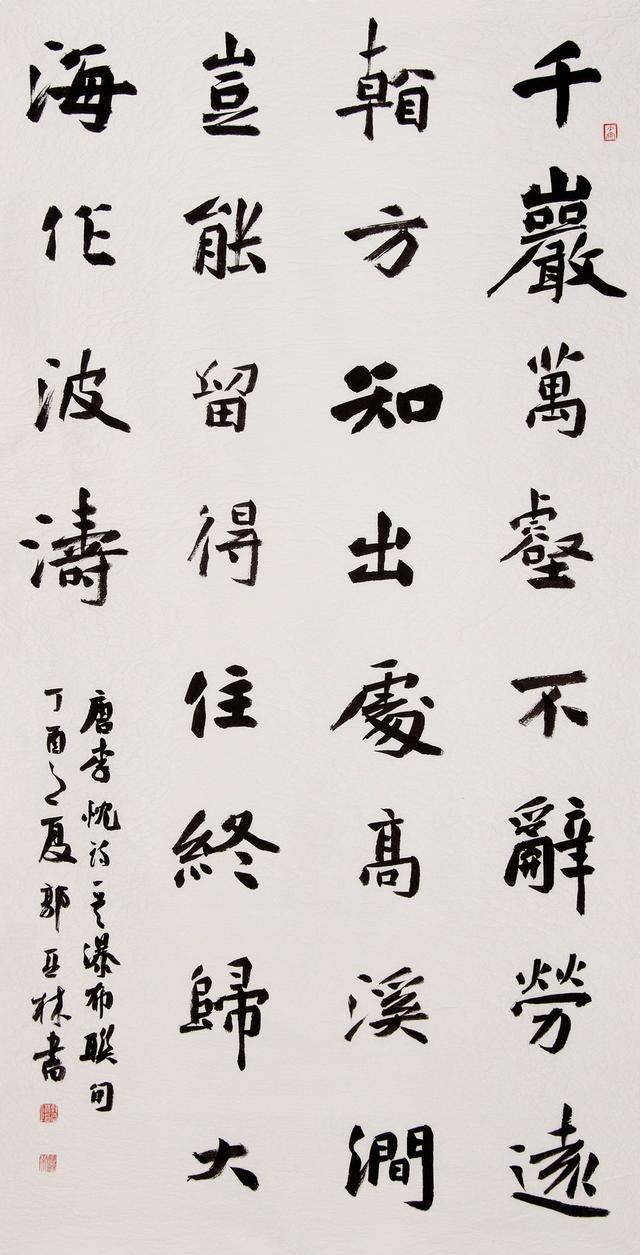 千巖萬壑不辭勞遠
看方知出處高溪澗
豈能留得住終歸大
海作波濤
唐李忱詩瀑布聯句
丁酉之夏郭亞林書